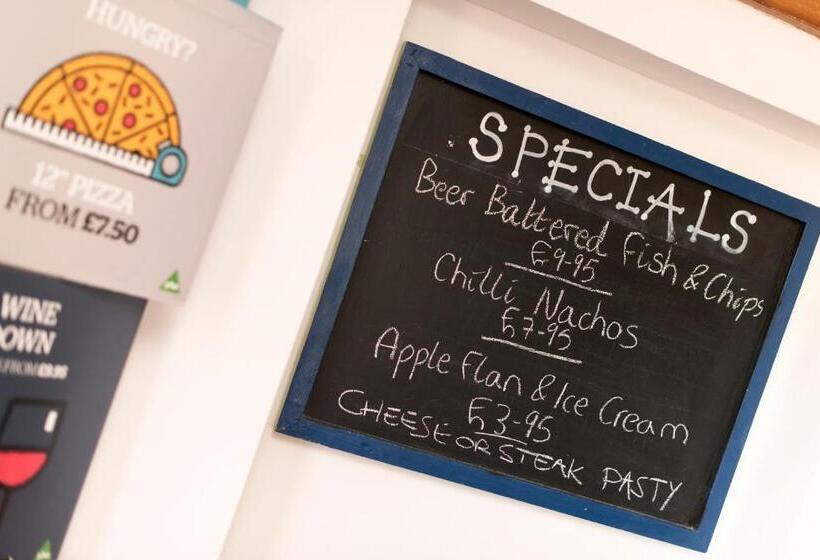 HUNGRY?
12" PIZZA
FROM £7.50
WINE
DOWN
FROM £9.95
SPECIALS
Beer Battered Fish & Chips
£9-95
Chilli Nachos
£7-95
Apple Flan & Ice Cream
£3-95
CHEESE OR STEAK PASTY